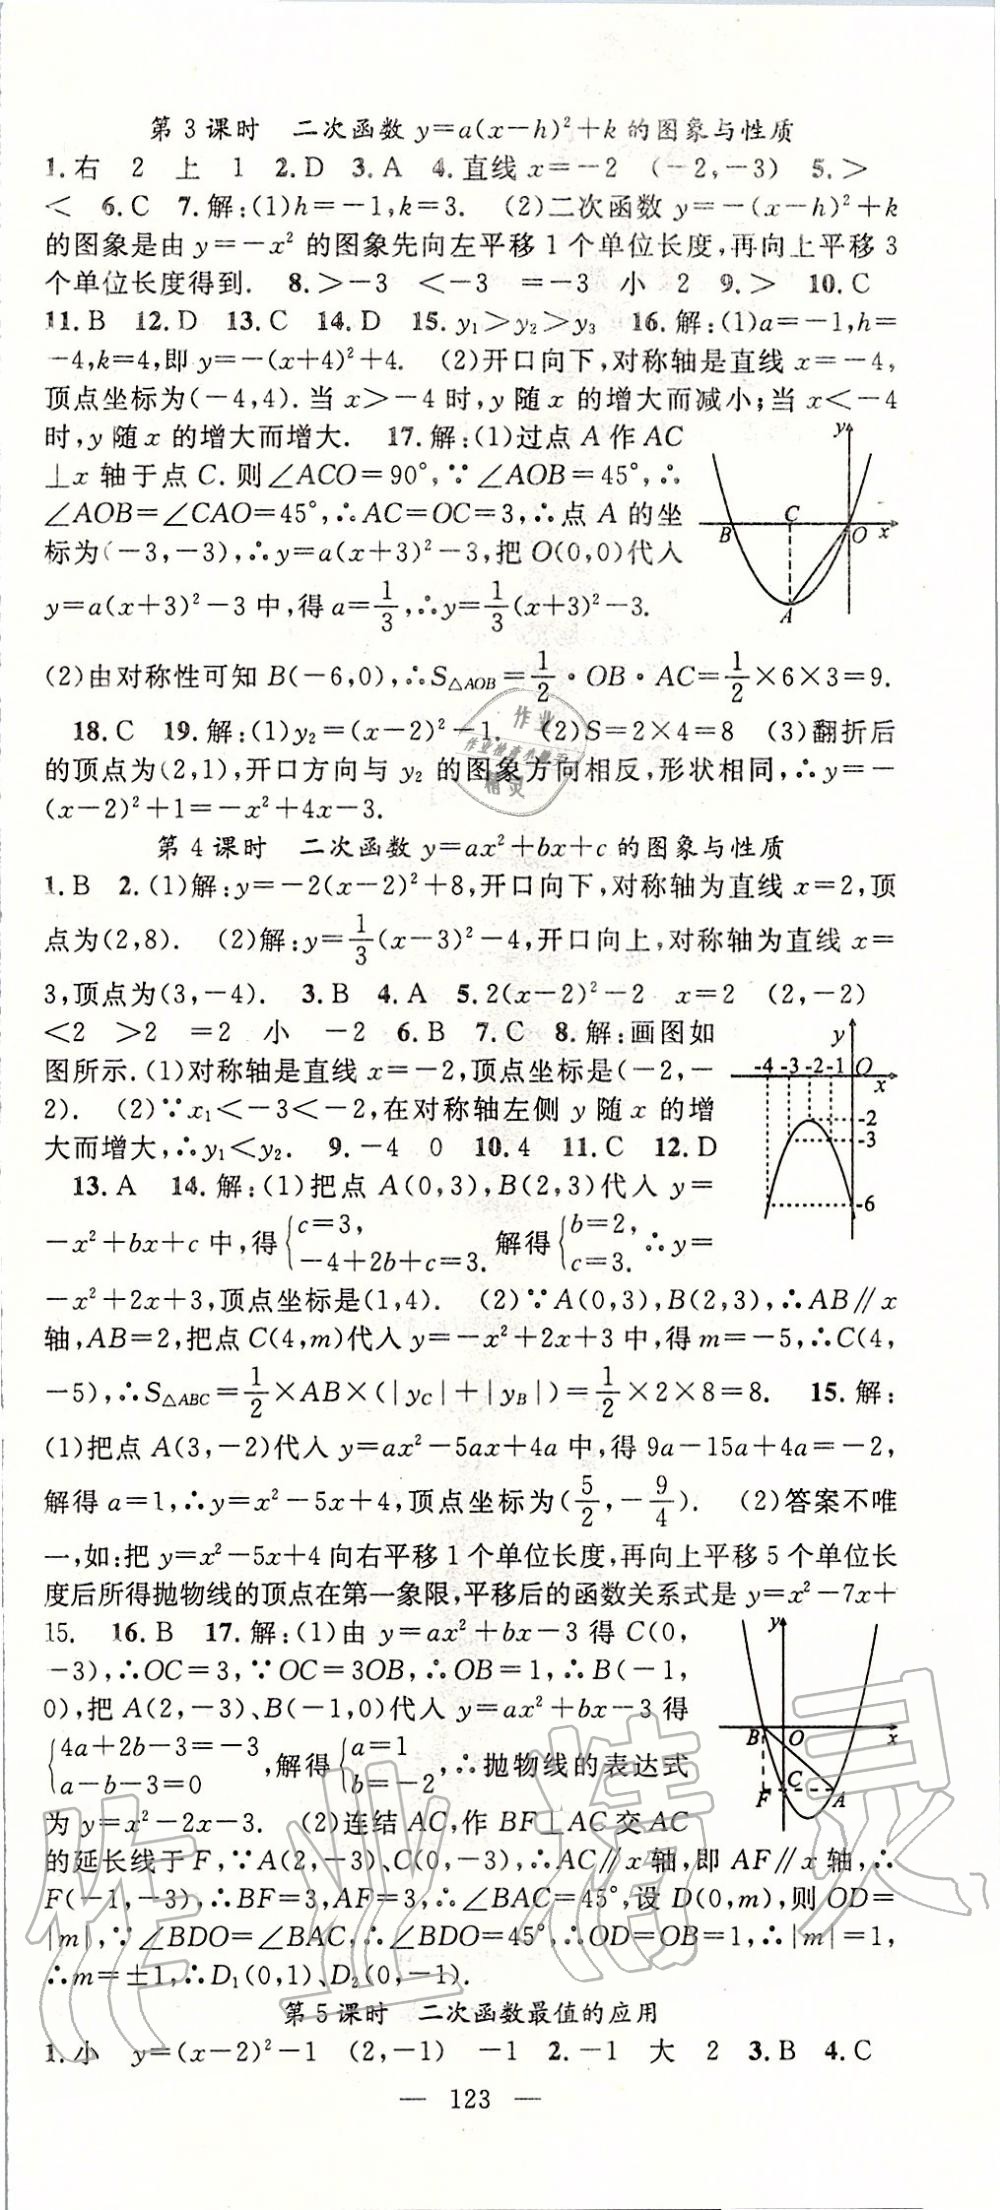 第3课时　二次函数 y=a(x-h)²+k 的图象与性质
1.右　2　上　1　2.D　3.A　4.直线 x=-2　(-2,-3)　5.>
<　6.C　7.解:(1)h=-1,k=3.　(2)二次函数 y=-(x-h)²+k
的图象是由 y=-x² 的图象先向左平移 1 个单位长度,再向上平移 3
个单位长度得到.　8.>-3　<-3　=-3　小　2　9.>　10.C
11.B　12.D　13.C　14.D　15.y₁>y₂>y₃　16.解:(1)a=-1,h=
-4,k=4,即 y=-(x+4)²+4.　(2)开口向下,对称轴是直线 x=-4,
顶点坐标为(-4,4).当 x>-4 时,y 随 x 的增大而减小;当 x<-4
时,y 随 x 的增大而增大.　17.解:(1)过点 A 作 AC
⊥x 轴于点 C.则∠ACO=90°,∵∠AOB=45°,∴
∠AOB=∠CAO=45°,∴AC=OC=3,∴点 A 的坐
标为(-3,-3),∴y=a(x+3)²-3,把 O(0,0)代入
y=a(x+3)²-3 中,得 a=1/3,∴y=1/3(x+3)²-3.
y
B C O x
A
(2)由对称性可知 B(-6,0),∴S△AOB=1/2·OB·AC=1/2×6×3=9.
18.C　19.解:(1)y₂=(x-2)²-1.　(2)S=2×4=8　(3)翻折后
的顶点为(2,1),开口方向与 y₂ 的图象方向相反,形状相同,∴y=-
(x-2)²+1=-x²+4x-3.
第4课时　二次函数 y=ax²+bx+c 的图象与性质
1.B　2.(1)解:y=-2(x-2)²+8,开口向下,对称轴为直线 x=2,顶
点为(2,8).　(2)解:y=1/3(x-3)²-4,开口向上,对称轴为直线 x=
3,顶点为(3,-4).　3.B　4.A　5.2(x-2)²-2　x=2　(2,-2)
<2　>2　=2　小　-2　6.B　7.C　8.解:画图如
图所示.(1)对称轴是直线 x=-2,顶点坐标是(-2,-
2).　(2)∵x₁<-3<-2,在对称轴左侧 y 随 x 的增
大而增大,∴y₁<y₂.　9.-4　0　10.4　11.C　12.D
y
-4 -3 -2 -1 O x
-2
-3
-6
13.A　14.解:(1)把点 A(0,3),B(2,3)代入 y=
-x²+bx+c 中,得{c=3, -4+2b+c=3. 解得{b=2, c=3. ∴y=
-x²+2x+3,顶点坐标是(1,4).　(2)∵A(0,3),B(2,3),∴AB∥x
轴,AB=2,把点 C(4,m)代入 y=-x²+2x+3 中,得 m=-5,∴C(4,
-5),∴S△ABC=1/2×AB×(|yC|+|yB|)=1/2×2×8=8.　15.解:
(1)把点 A(3,-2)代入 y=ax²-5ax+4a 中,得 9a-15a+4a=-2,
解得 a=1,∴y=x²-5x+4,顶点坐标为(5/2,-9/4).　(2)答案不唯
一,如:把 y=x²-5x+4 向右平移 1 个单位长度,再向上平移 5 个单位长
度后所得抛物线的顶点在第一象限,平移后的函数关系式是 y=x²-7x+
15.　16.B　17.解:(1)由 y=ax²+bx-3 得 C(0,
-3),∴OC=3,∵OC=3OB,∴OB=1,∴B(-1,
0),把 A(2,-3)、B(-1,0)代入 y=ax²+bx-3 得
{4a+2b-3=-3 a-b-3=0 ,解得{a=1 b=-2 ,∴抛物线的表达式
为 y=x²-2x-3.　(2)连结 AC,作 BF⊥AC 交 AC
y
B O x
F C A
的延长线于 F,∵A(2,-3)、C(0,-3),∴AC∥x 轴,即 AF∥x 轴,∴
F(-1,-3),∴BF=3,AF=3,∴∠BAC=45°,设 D(0,m),则 OD=
|m|,∵∠BDO=∠BAC,∴∠BDO=45°,∴OD=OB=1,∴|m|=1,
∴m=±1,∴D₁(0,1)、D₂(0,-1).
第5课时　二次函数最值的应用
1.小　y=(x-2)²-1　(2,-1)　-1　2.-1　大　2　3.B　4.C
— 123 —
作业精灵